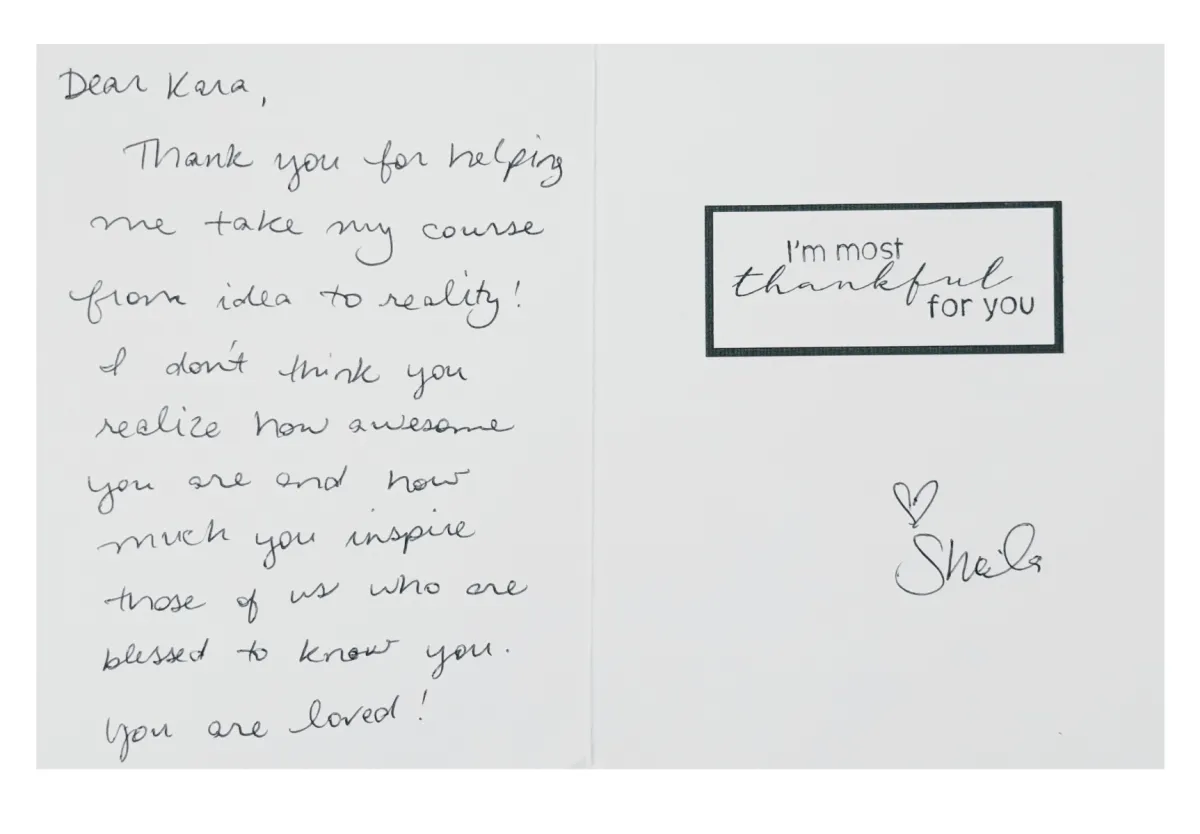 Dear Kara,
Thank you for helping
me take my course
from idea to reality!
I don't think you
realize how awesome
you are and how
much you inspire
those of us who are
blessed to know you.
You are loved!
I'm most
thankful
for you
Sheila